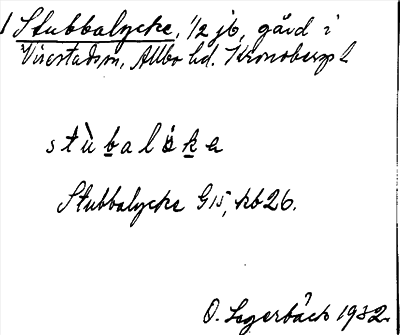 1 Stubbalycke, 1/2 jb, gård i
Virestads sn, Allbo hd. Kronobergs l
stùbalöka
Stubbalycke G15, kb26.
O. Lagerbäck 1932.